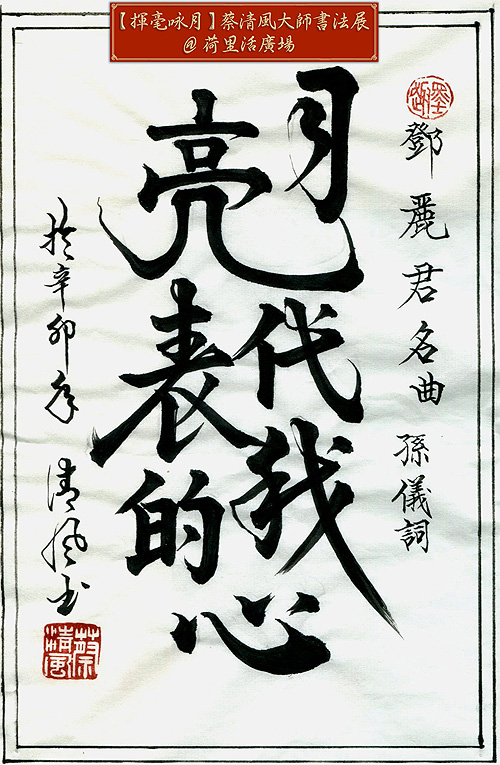 【揮毫咏月】蔡清風大師書法展
@荷里活廣場
鄧麗君名曲 孫儀詞
月亮代表我的心
於辛卯年 清風书
蔡清風